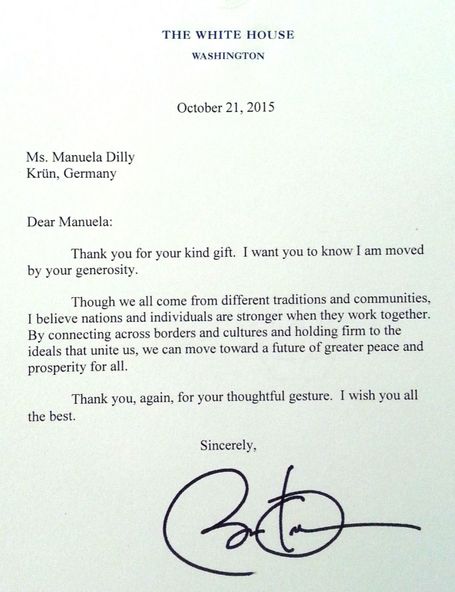 THE WHITE HOUSE
WASHINGTON
October 21, 2015
Ms. Manuela Dilly
Krün, Germany
Dear Manuela:
Thank you for your kind gift. I want you to know I am moved
by your generosity.
Though we all come from different traditions and communities,
I believe nations and individuals are stronger when they work together.
By connecting across borders and cultures and holding firm to the
ideals that unite us, we can move toward a future of greater peace and
prosperity for all.
Thank you, again, for your thoughtful gesture. I wish you all
the best.
Sincerely,